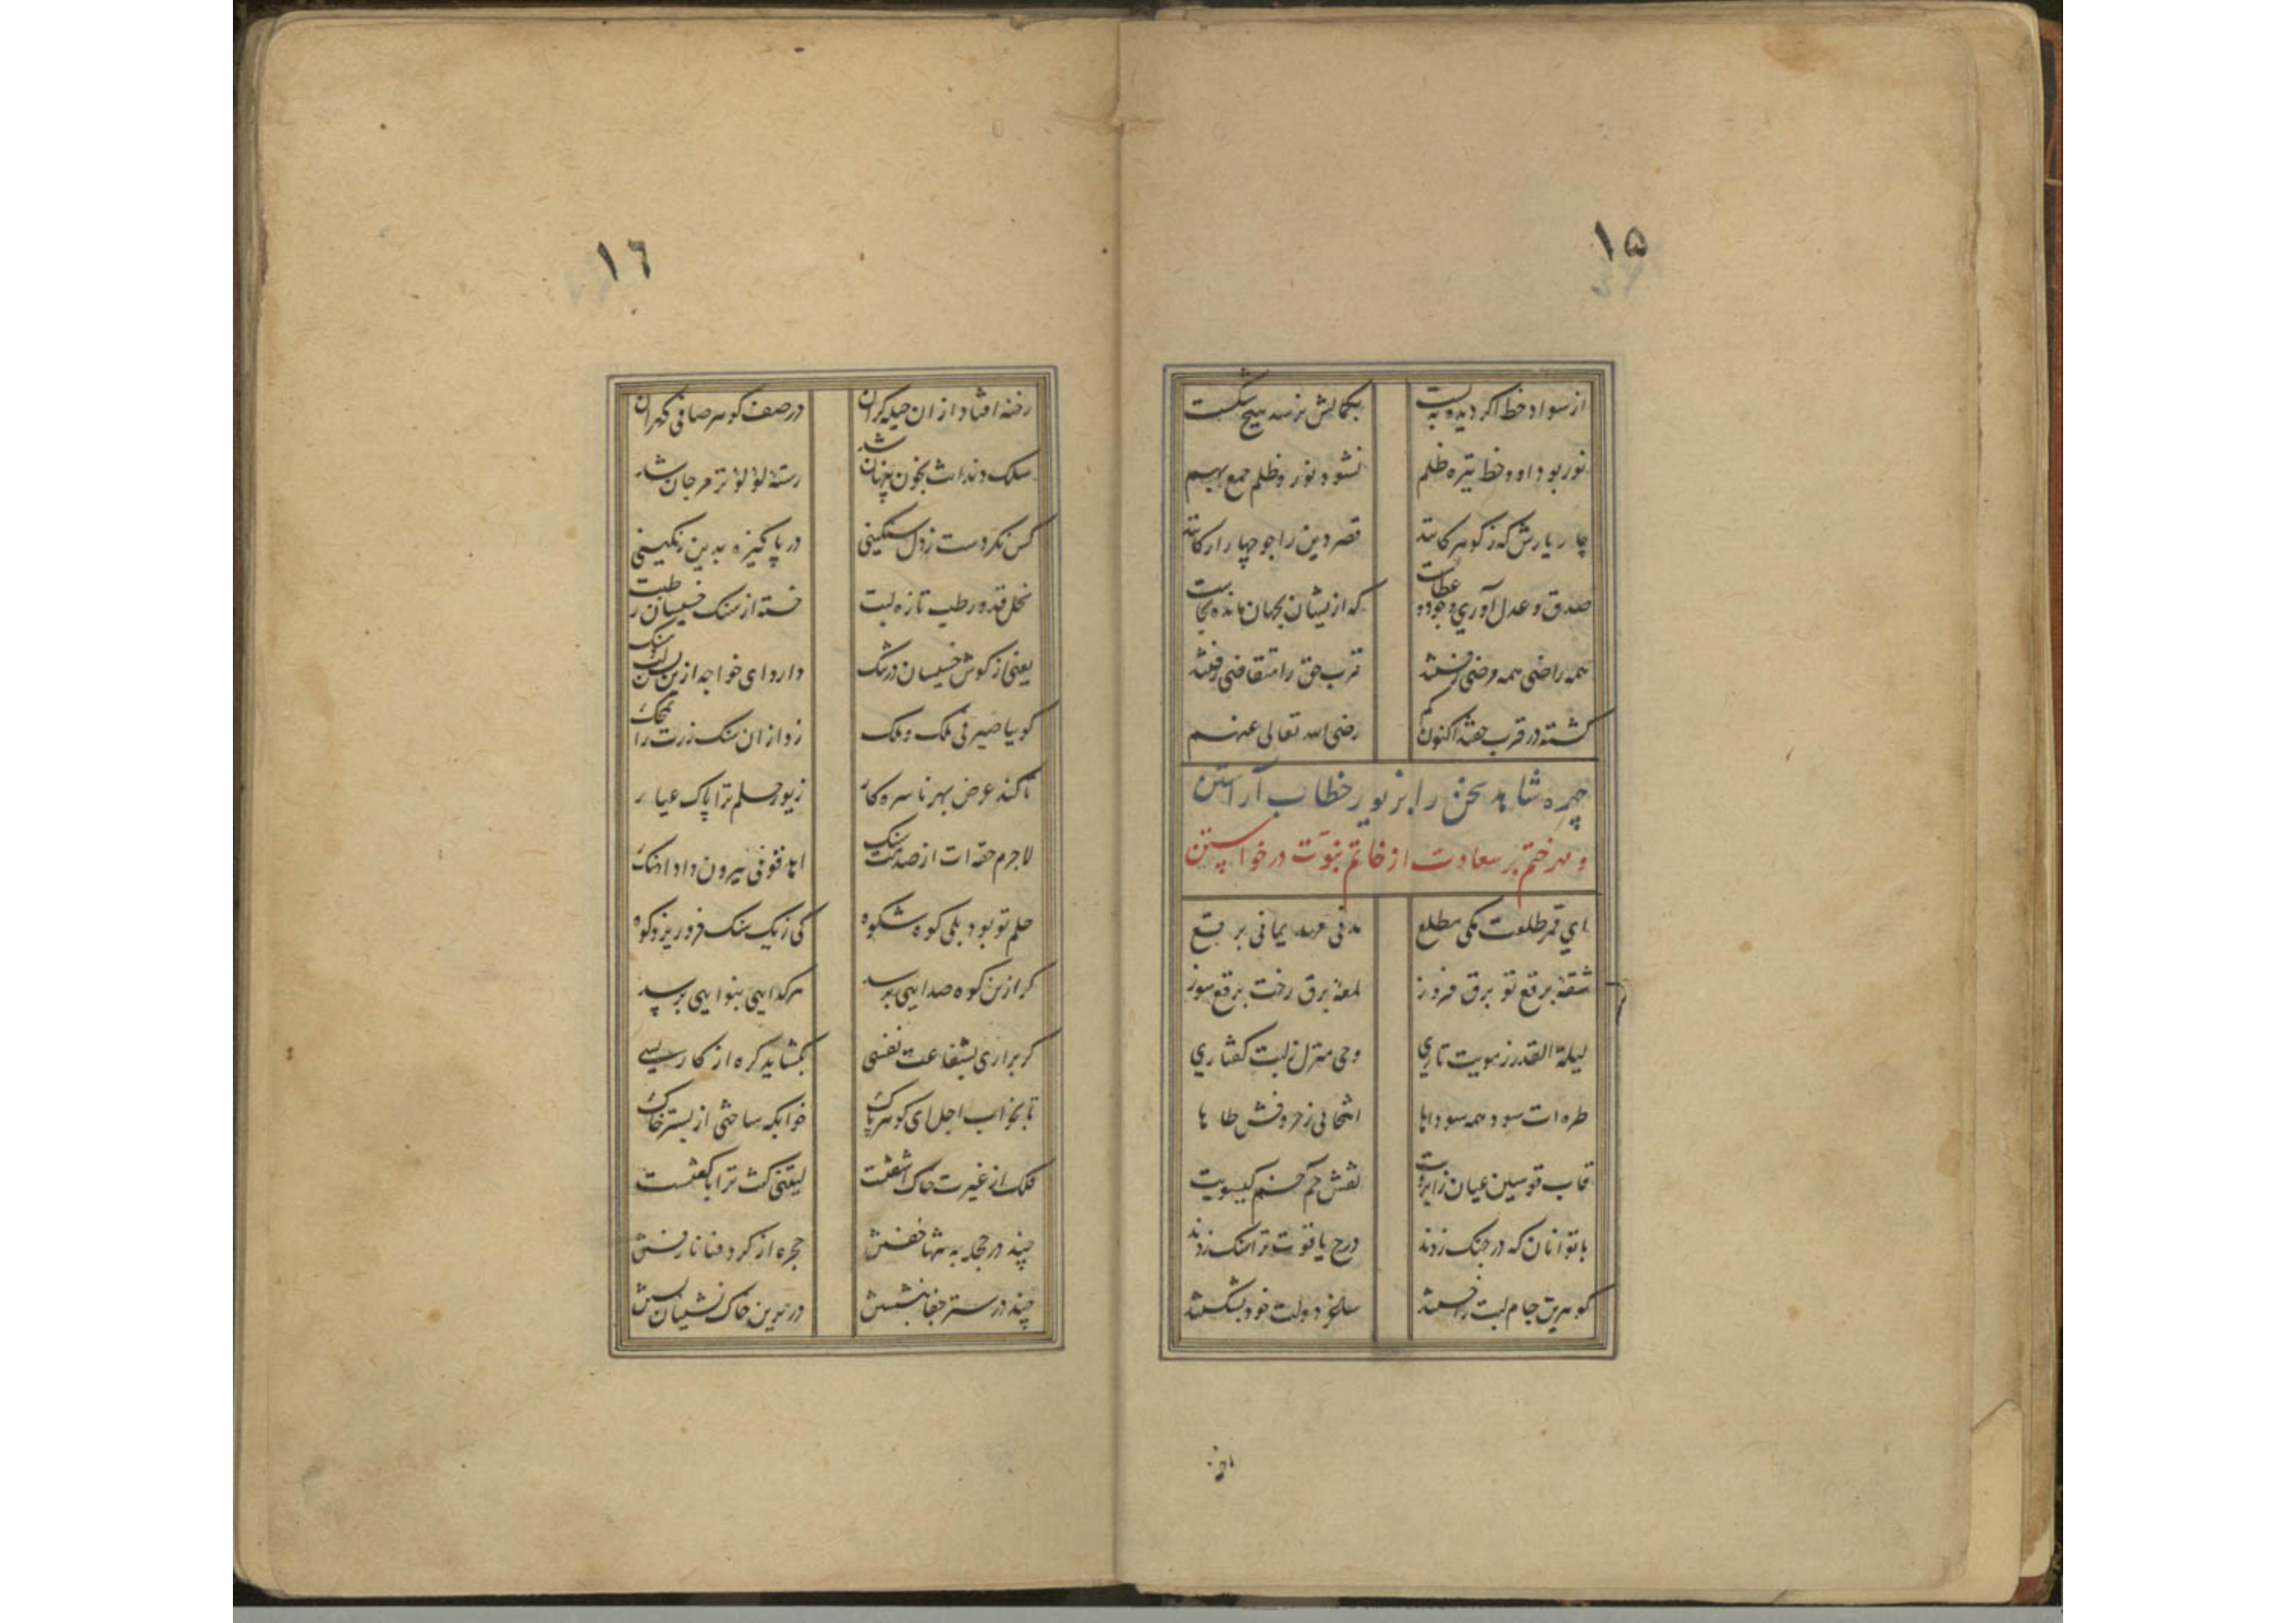 ۱۵
از سواد خط اگر دیده ببست بکمالش نرسد هیچ شکست
نور بود او و خط تیره ظلم نشود نور و ظلم جمع بهم
چار یارش که ز گوهر کانند قصر دین را چو چهار ارکانند
صدق و عدل آوری و جود و عطاست که ازیشان بجهان مانده بجاست
همه راضی همه مرضی رفتند قرب حق را متقاضی رفتند
گشته در قرب حقند اکنون گم رضی الله تعالی عنهم
چهره شاهد سخن را بزیور خطاب آراستن
و مهر ختم بر سعادت از خاتم نبوت درخواستن
ای قمر طلعت مکی مطلع مدنی مهد یمانی برقع
شقه برقع تو برق فروز لمعه برق رخت برقع سوز
لیلة القدر ز مویت تاری وحی منزل ز لبت گفتاری
طره ات سود همه سوداها انتحالی ز حروفش طاها
قاب قوسین عیان ز ابرویت نقش حم خم گیسویت
با تو آنان که در جنگ زدند درج یاقوت ترا سنگ زدند
گوهرین جام لبت را خستند ساغر دولت خود بشکستند
۱۶
رخنه افتاد از ان حیله گران در صف گوهر صافی گهران
سلک دندانت بخون پنهان شد رسته لؤلؤ تر مرجان شد
کس نکردست ز دل سنگینی در پاکیزه بدین رنگینی
نخل قند و رطب تازه لبت خسته از سنگ خسیسان رطبت
یعنی از گوش خسیسان در تنگ دارد ای خواجه ازین لب سنگ
گوییا صیرفی ملک و ملک زد از ان سنگ زرت را بمحک
تا کند عرض بهر ناسره کار زیور حلم ترا پاک عیار
لاجرم حقه ات از صدمت سنگ اهد قومی بیرون داد آهنگ
حلم تو بود بلی کوه شکوه کی ز یک سنگ فرو ریزد کوه
گر ازین کوه صدایی برسد هر گدایی بنوایی برسد
گر براری بشفاعت نفسی بگشاید گره از کار بسی
تا بخواب اجل ای گوهر پاک خوابگه ساختی از بستر خاک
فلک از غیرت خاک آشفتست لیتنی کنت ترابا گفتست
چند در حجله به تنها خفتش حجره از گرد فنا نا رفتش
چند در ستر خفا بنشستن در برین خاک نشینان بستن